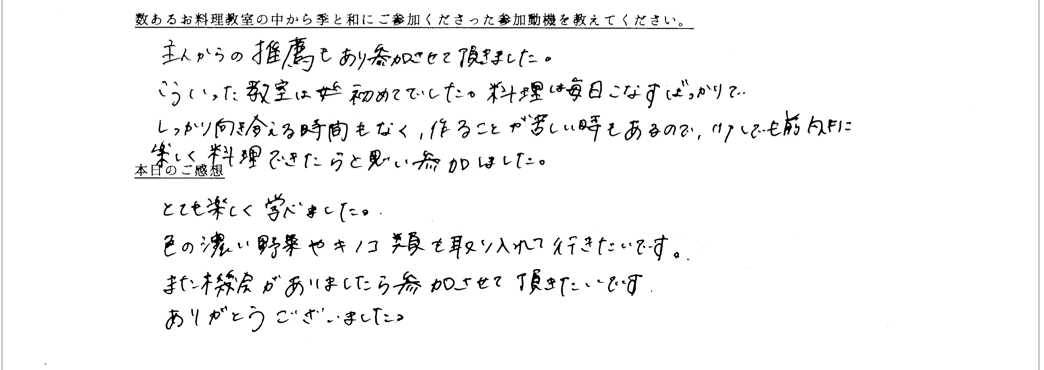 数あるお料理教室の中から季と和にご参加くださった参加動機を教えてください。
主人からの推薦もあり参加させて頂きました。
こういった教室は 初めてでした。料理は毎日こなすばっかりで
しっかり向き合える時間もなく、作ることが苦しい時もあるので、少しでも前向きに
楽しく料理できたらと思い参加しました。
本日のご感想
とても楽しく学べました。
色の濃い野菜やキノコ類も取り入れて行きたいです。
また機会がありましたら参加させて頂きたいです.
ありがとうございました。